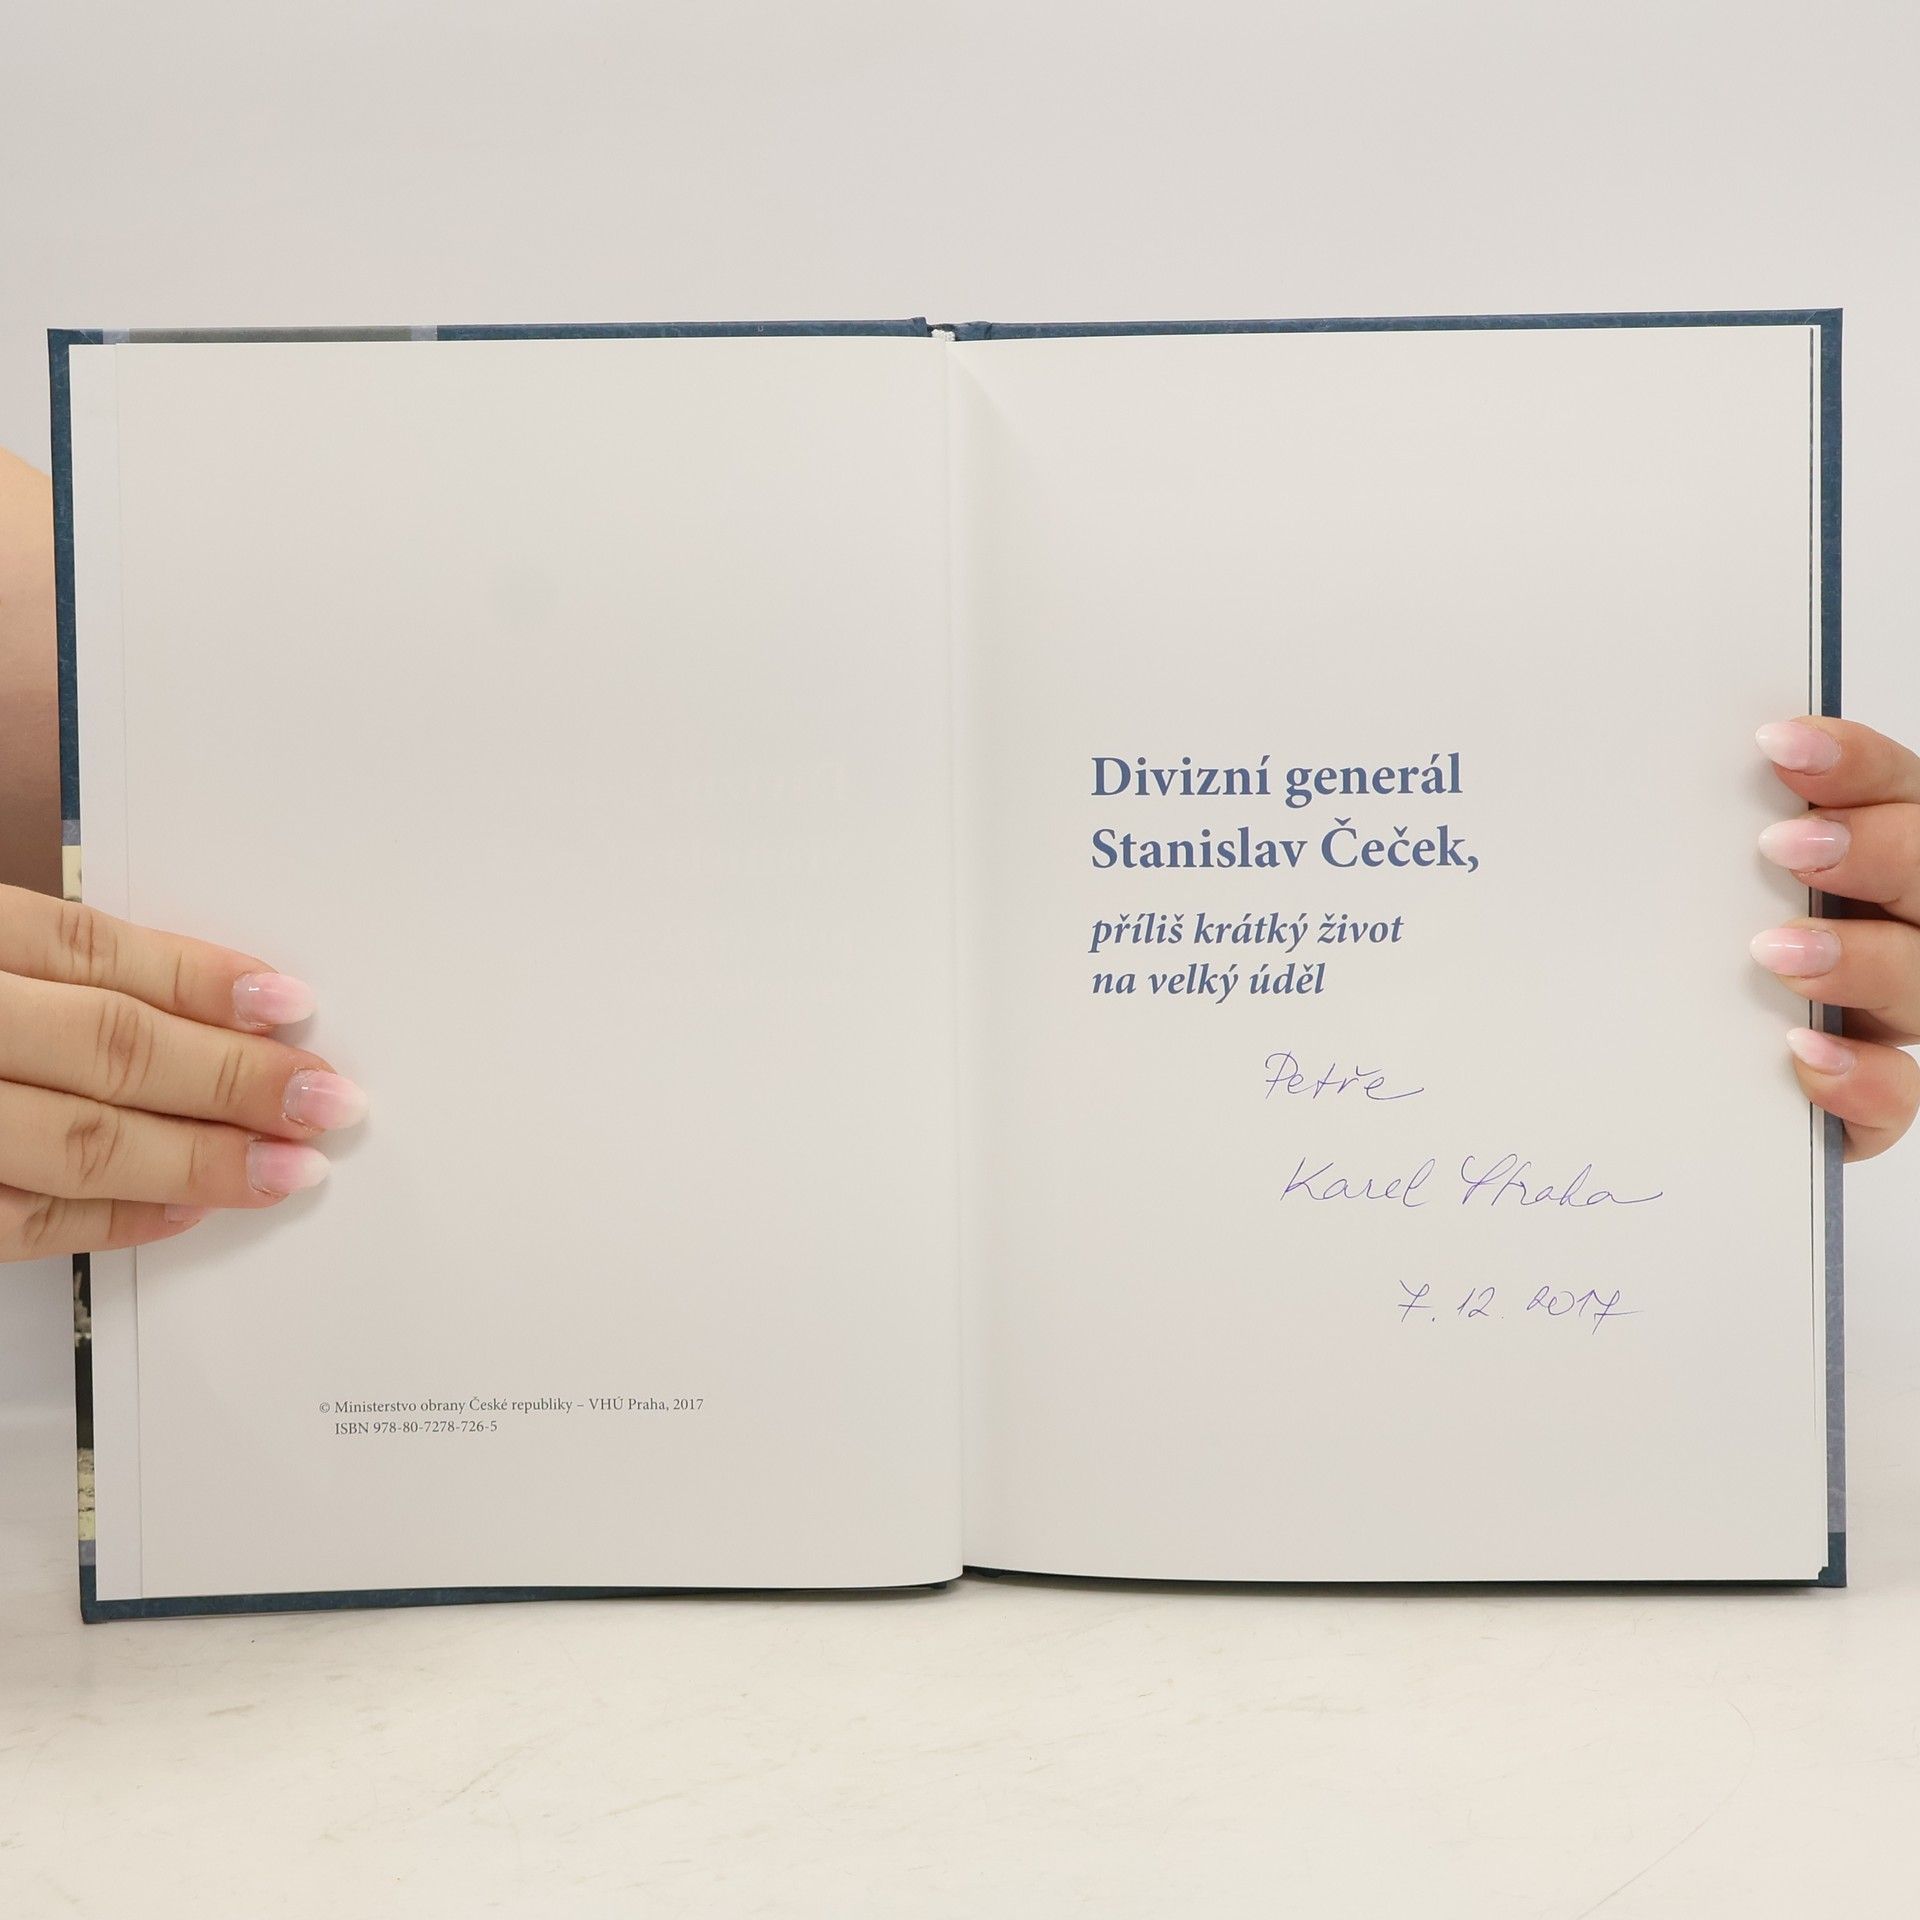 © Ministerstvo obrany České republiky – VHÚ Praha, 2017
ISBN 978-80-7278-726-5
Divizní generál
Stanislav Čeček,
příliš krátký život
na velký úděl
Petře
Karel Straka
7. 12. 2017